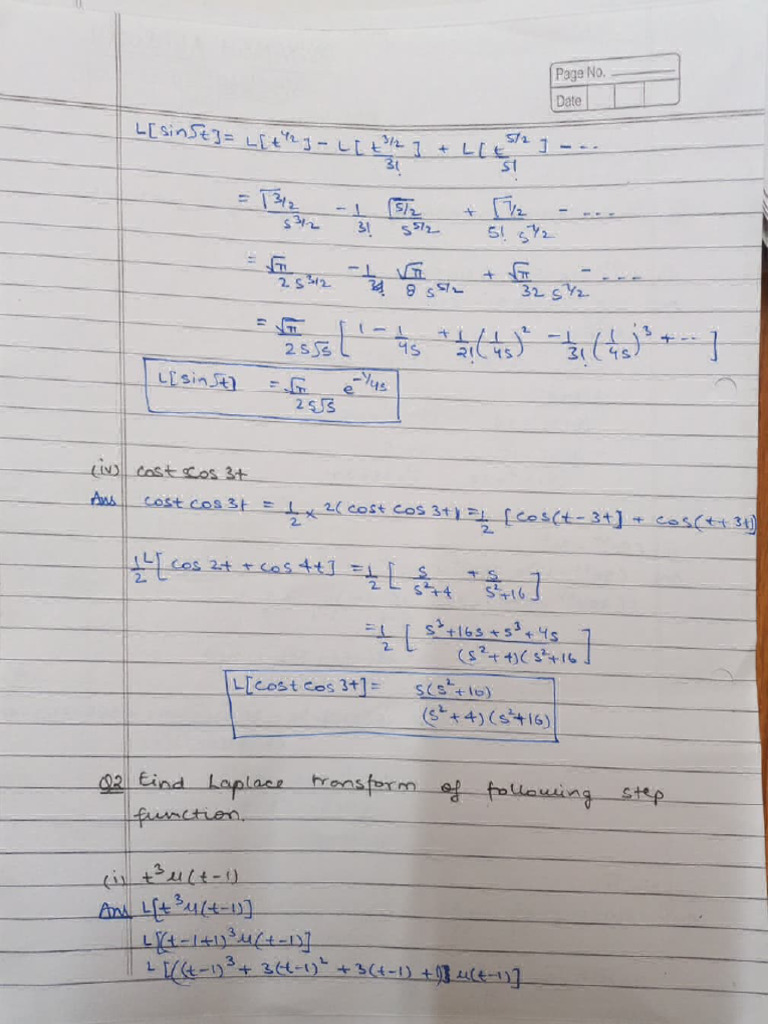 Page No.
Date
L[sin√t] = L[t^1/2] - L[t^3/2 / 3!] + L[t^5/2 / 5!] - ...
= Γ3/2 / s^3/2 - 1/3! Γ5/2 / s^5/2 + Γ7/2 / 5! s^7/2 - ...
= √π / 2s^3/2 - 1/ √π / 8 s^5/2 + √π / 32 s^7/2 - ...
= √π / 2s√s [1 - 1/4s + 1/2! (1/4s)^2 - 1/3! (1/4s)^3 + ...]
L[sin√t] = √π / 2s√s e^-1/4s
(iv) cost cos 3t
Ans cost cos 3t = 1/2 × 2(cost cos 3t) = 1/2 [cos(t-3t] + cos(t+3t)]
1/2 L[cos 2t + cos 4t] = 1/2 [s / s^2+4 + s / s^2+16]
= 1/2 [s^3+16s+s^3+4s / (s^2+4)(s^2+16]
L[cost cos 3t] = s(s^2+10) / (s^2+4)(s^2+16)
Q2 Find Laplace transform of following step
function.
(i) t^3 u(t-1)
Ans L[t^3 u(t-1)]
L[(t-1+1)^3 u(t-1)]
L[((t-1)^3 + 3(t-1)^2 + 3(t-1) + 1) u(t-1)]